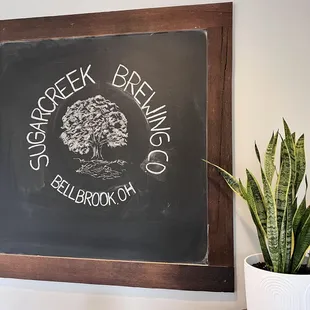 SUGARCREEK BREWING CO
BELLBROOK, OH